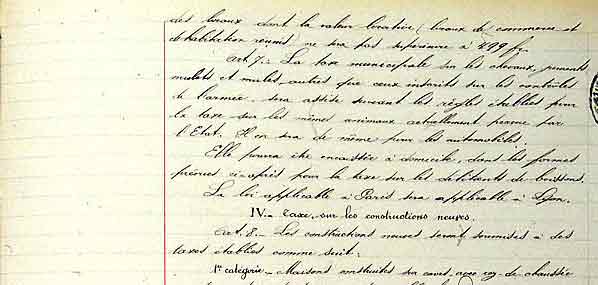 des locaux dont la valeur locative (locaux de commerce et
d'habitation réunis) ne sera pas supérieure à 499 fr.
Art. 7._ La taxe municipale sur les chevaux, juments
mulets et mules, autres que ceux inscrits sur les contrôles
de l'armée, sera assise suivant les règles établies pour
la taxe sur les mêmes animaux actuellement perçue par
l'Etat. Il en sera de même pour les automobiles.
Elle pourra être encaissée à domicile, dans les formes
prévues ci-après pour la taxe sur les débitants de boissons.
La loi applicable à Paris sera applicable à Lyon.
IV._ Taxe sur les constructions neuves.
Art. 8._ Les constructions neuves seront soumises à des
taxes établies comme suit:
1re catégorie._ Maisons construites sur caves, avec rez-de-chaussée